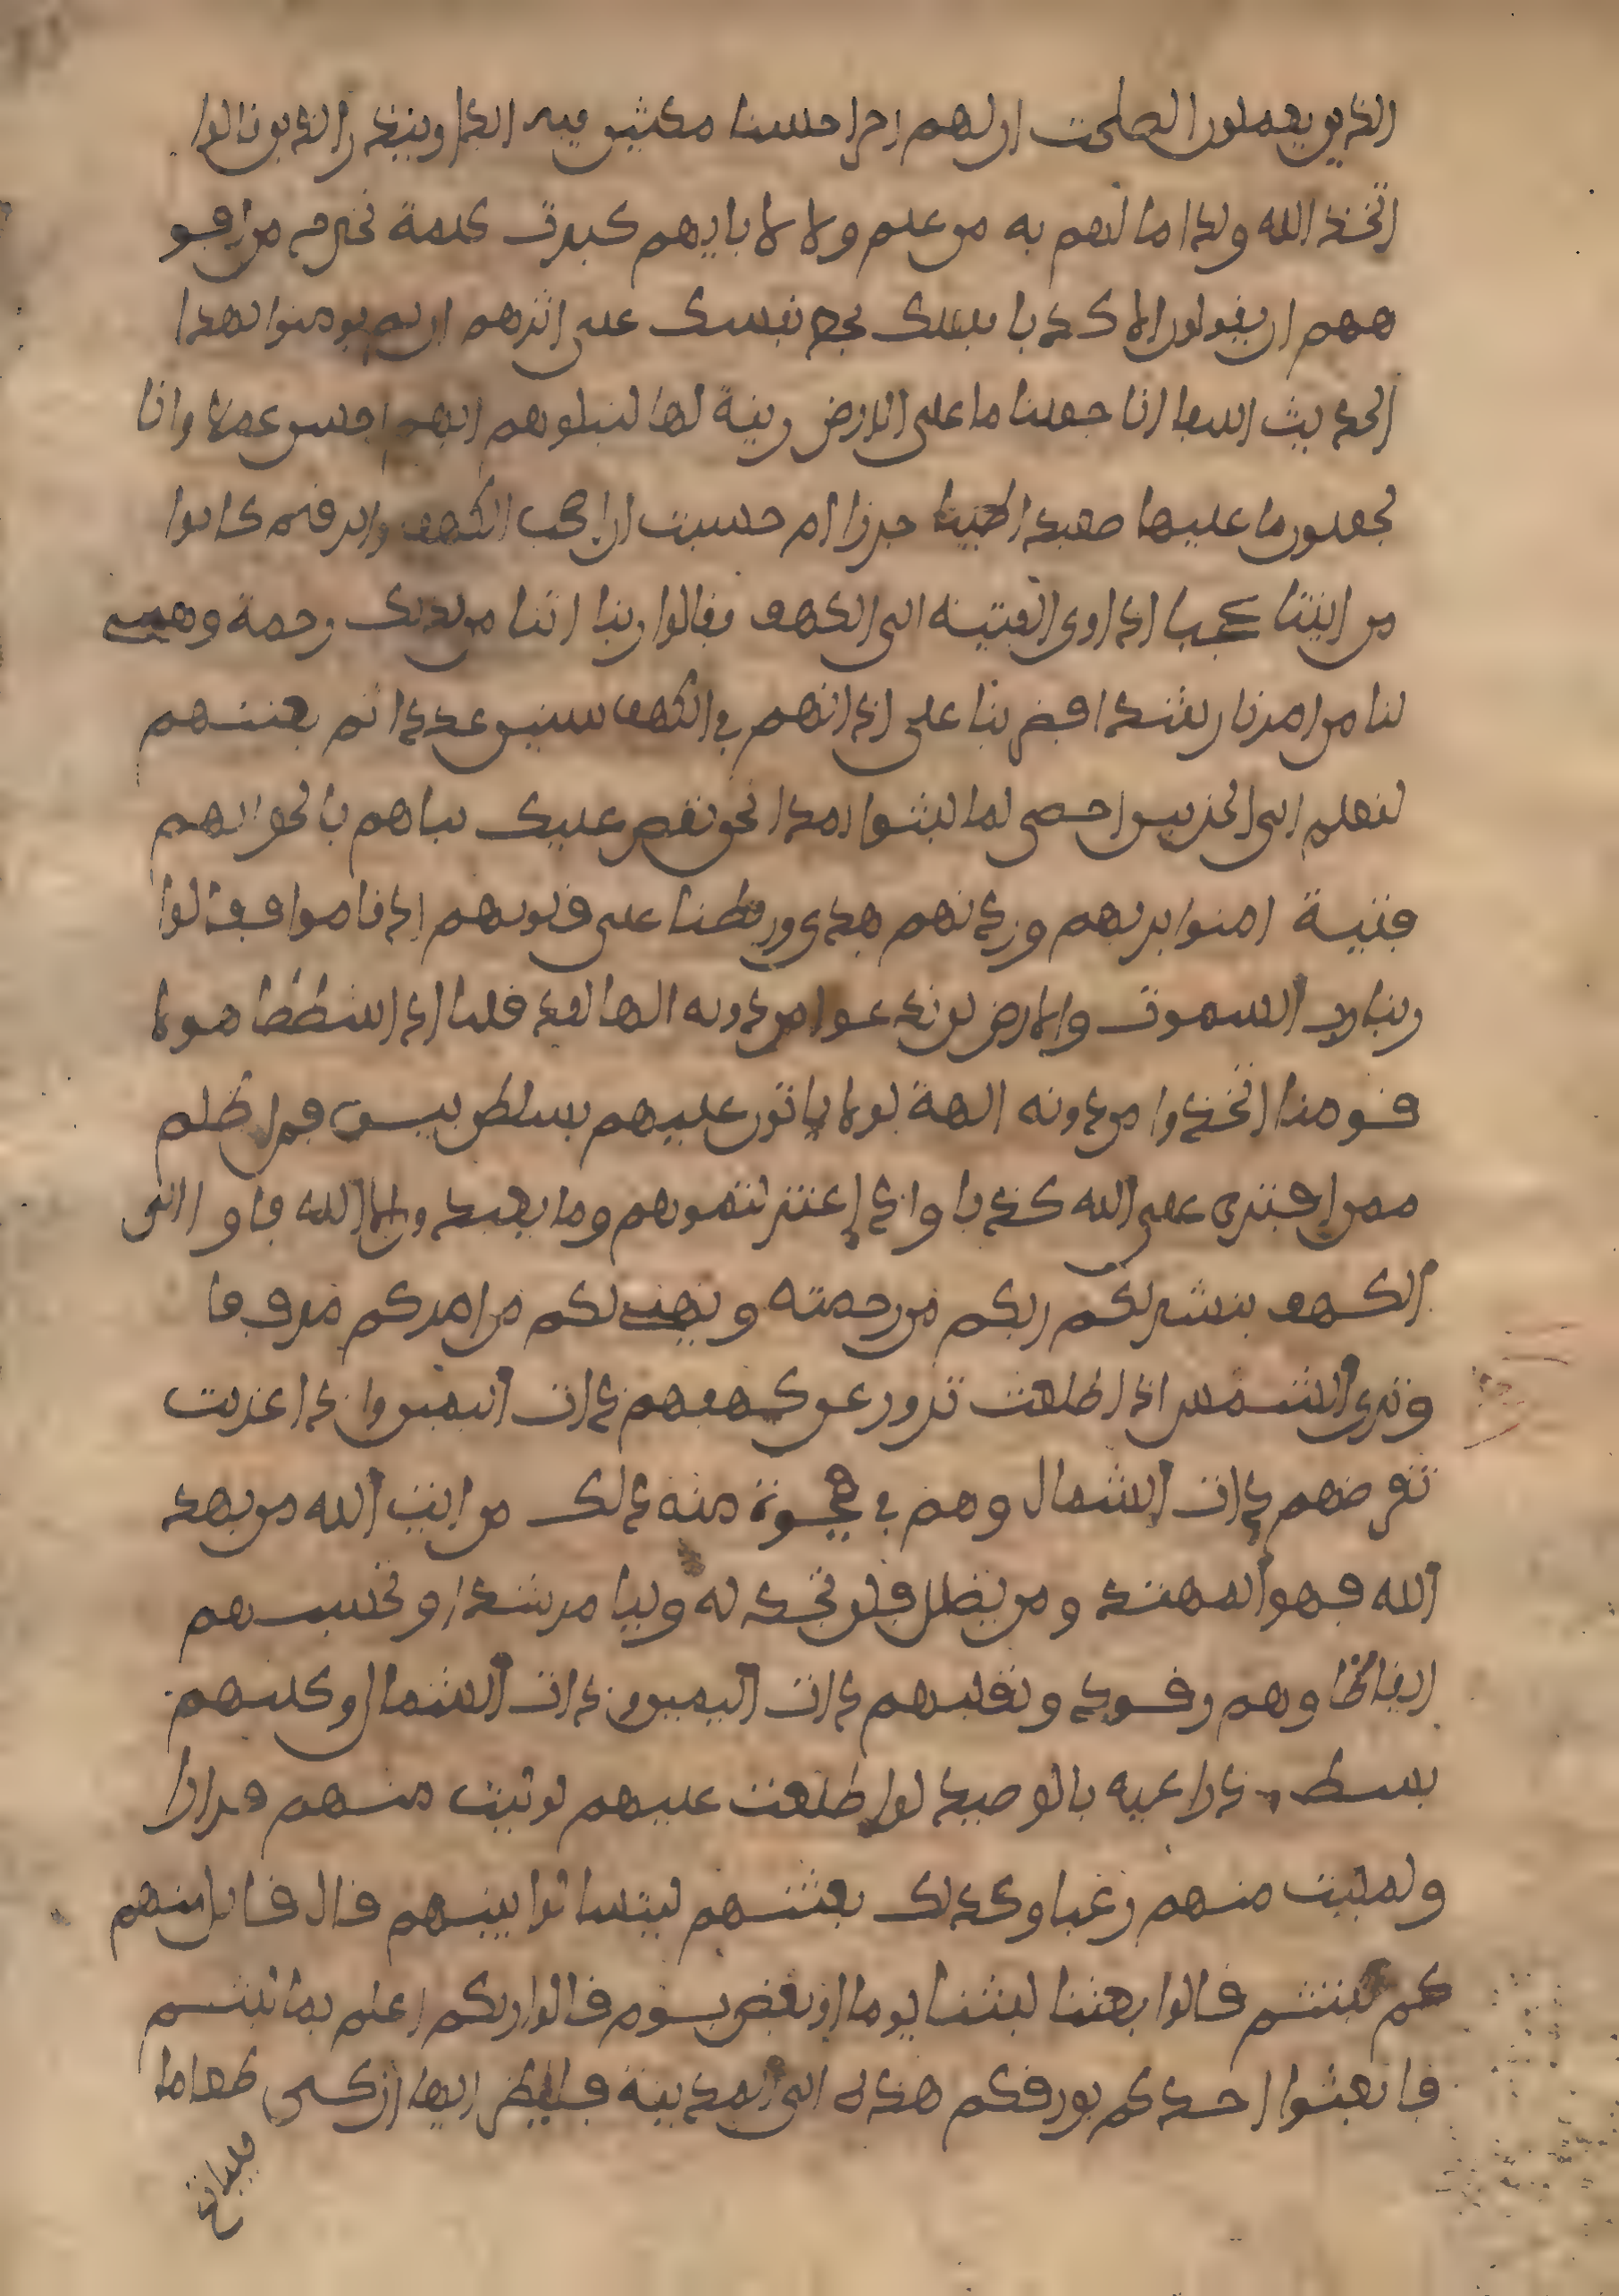 الذين يعملون الصلحت ان لهم اجرا حسنا مكثين فيه ابدا وينذر الذين قالوا
اتخذ الله ولدا ما لهم به من علم ولا لا بايهم كبرت كلمة تخرج من افو
ههم ان يقولون الا كذبا فلعلك بخع نفسك على اثرهم ان لم يومنوا بهذا
الحديث اسفا انا جعلنا ما على الارض زينة لها لنبلوهم ايهم احسن عملا وانا
لجعلون ما عليها صعيدا جرزا ام حسبت ان اصحب الكهف والرقيم كانوا
من ايتنا عجبا اذ اوى الفتية الى الكهف فقالوا ربنا اتنا من لدنك رحمة وهيئ
لنا من امرنا رشدا فضربنا على اذانهم في الكهف سنين عددا ثم بعثنهم
لنعلم اى الحزبين احصى لما لبثوا امدا نحن نقص عليك نباهم بالحق انهم
فتية امنوا بربهم وزدنهم هدى وربطنا على قلوبهم اذ قاموا فقالوا
ربنا رب السموت والارض لن ندعوا من دونه الها لقد قلنا اذا شططا هولا
قومنا اتخذوا من دونه الهة لولا ياتون عليهم بسلطن بين فمن اظلم
ممن افترى على الله كذبا واذ اعتزلتموهم وما يعبد والا الله فاوا الى
الكهف ينشر لكم ربكم من رحمته ويهيئ لكم من امركم مرفقا
وترى الشمس اذا طلعت تزور عن كهفهم ذات اليمين واذا غربت
تقرضهم ذات الشمال وهم في فجوة منه ذلك من ايت الله من يهد
الله فهو المهتد ومن يضلل فلن تجد له وليا مرشدا وتحسبهم
ايقاظا وهم رقود ونقلبهم ذات اليمين وذات الشمال وكلبهم
بسط ذراعيه بالوصيد لو اطلعت عليهم لوليت منهم فرارا
ولمليت منهم رعبا وكذلك بعثنهم ليتسالوا بينهم قال قايل منهم
كم لبثتم قالوا لبثنا يوما او بعض يوم قالوا ربكم اعلم بما لبثتم
فابعثوا احدكم بورقكم هذه الى المدينة فلينظر ايها ازكى طعاما
فليات